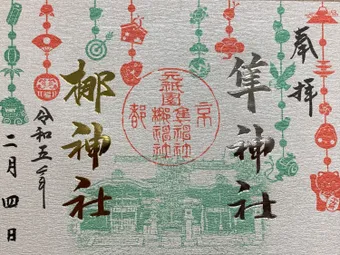 奉拝
隼神社
京
元祇園
隼神社
梛神社
都
梛神社
令和五年
二月四日